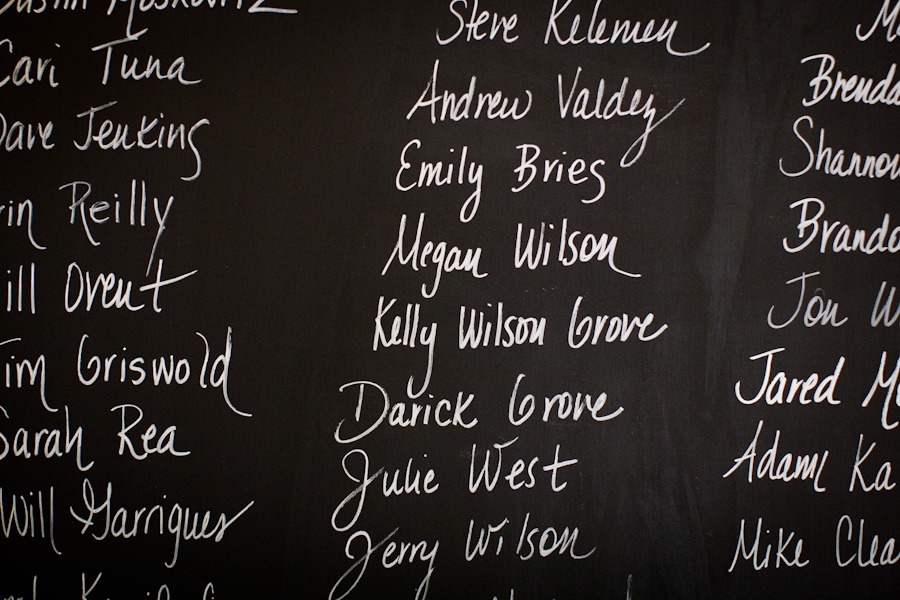 Dustin Moskovitz
Cari Tuna
Dave Jenkins
Reilly
Tim Griswold
Sarah Rea
Will Garrigues
Steve Kelemen
Andrew Valdez
Emily Bries
Megan Wilson
Kelly Wilson Grove
Darick Grove
Julie West
Jerry Wilson
Brenda
Shannon
Brando
Jon W
Jared
Adam Ka
Mike Clea